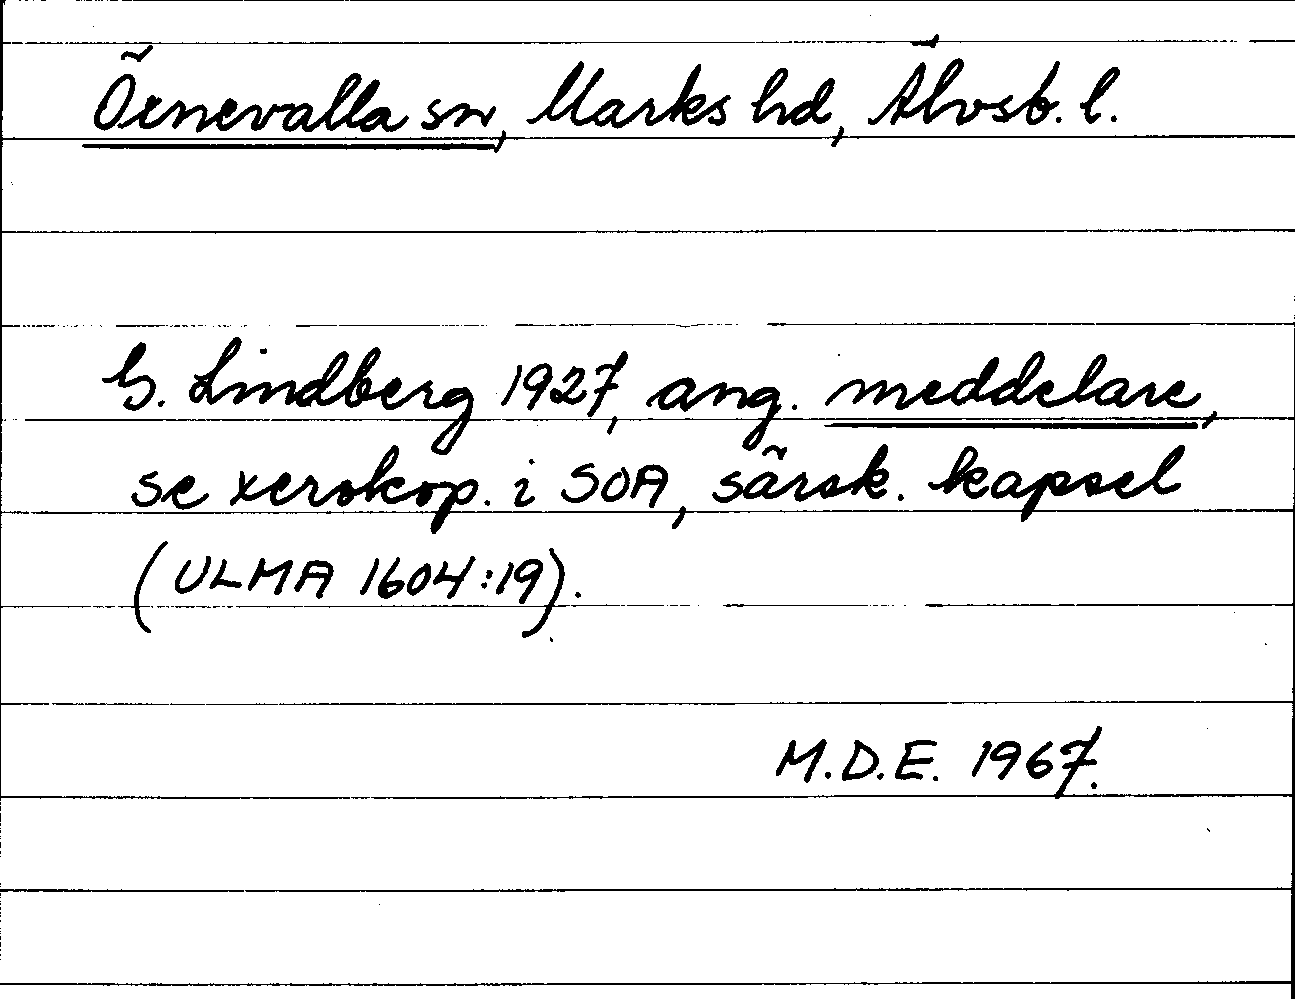 Örnevalla sn, Marks hd, Älvsb. l.
G. Lindberg 1927, ang. meddelare,
se xerokop. i SOA, särsk. kapsel
(ULMA 1604:19).
M.D.E. 1967.